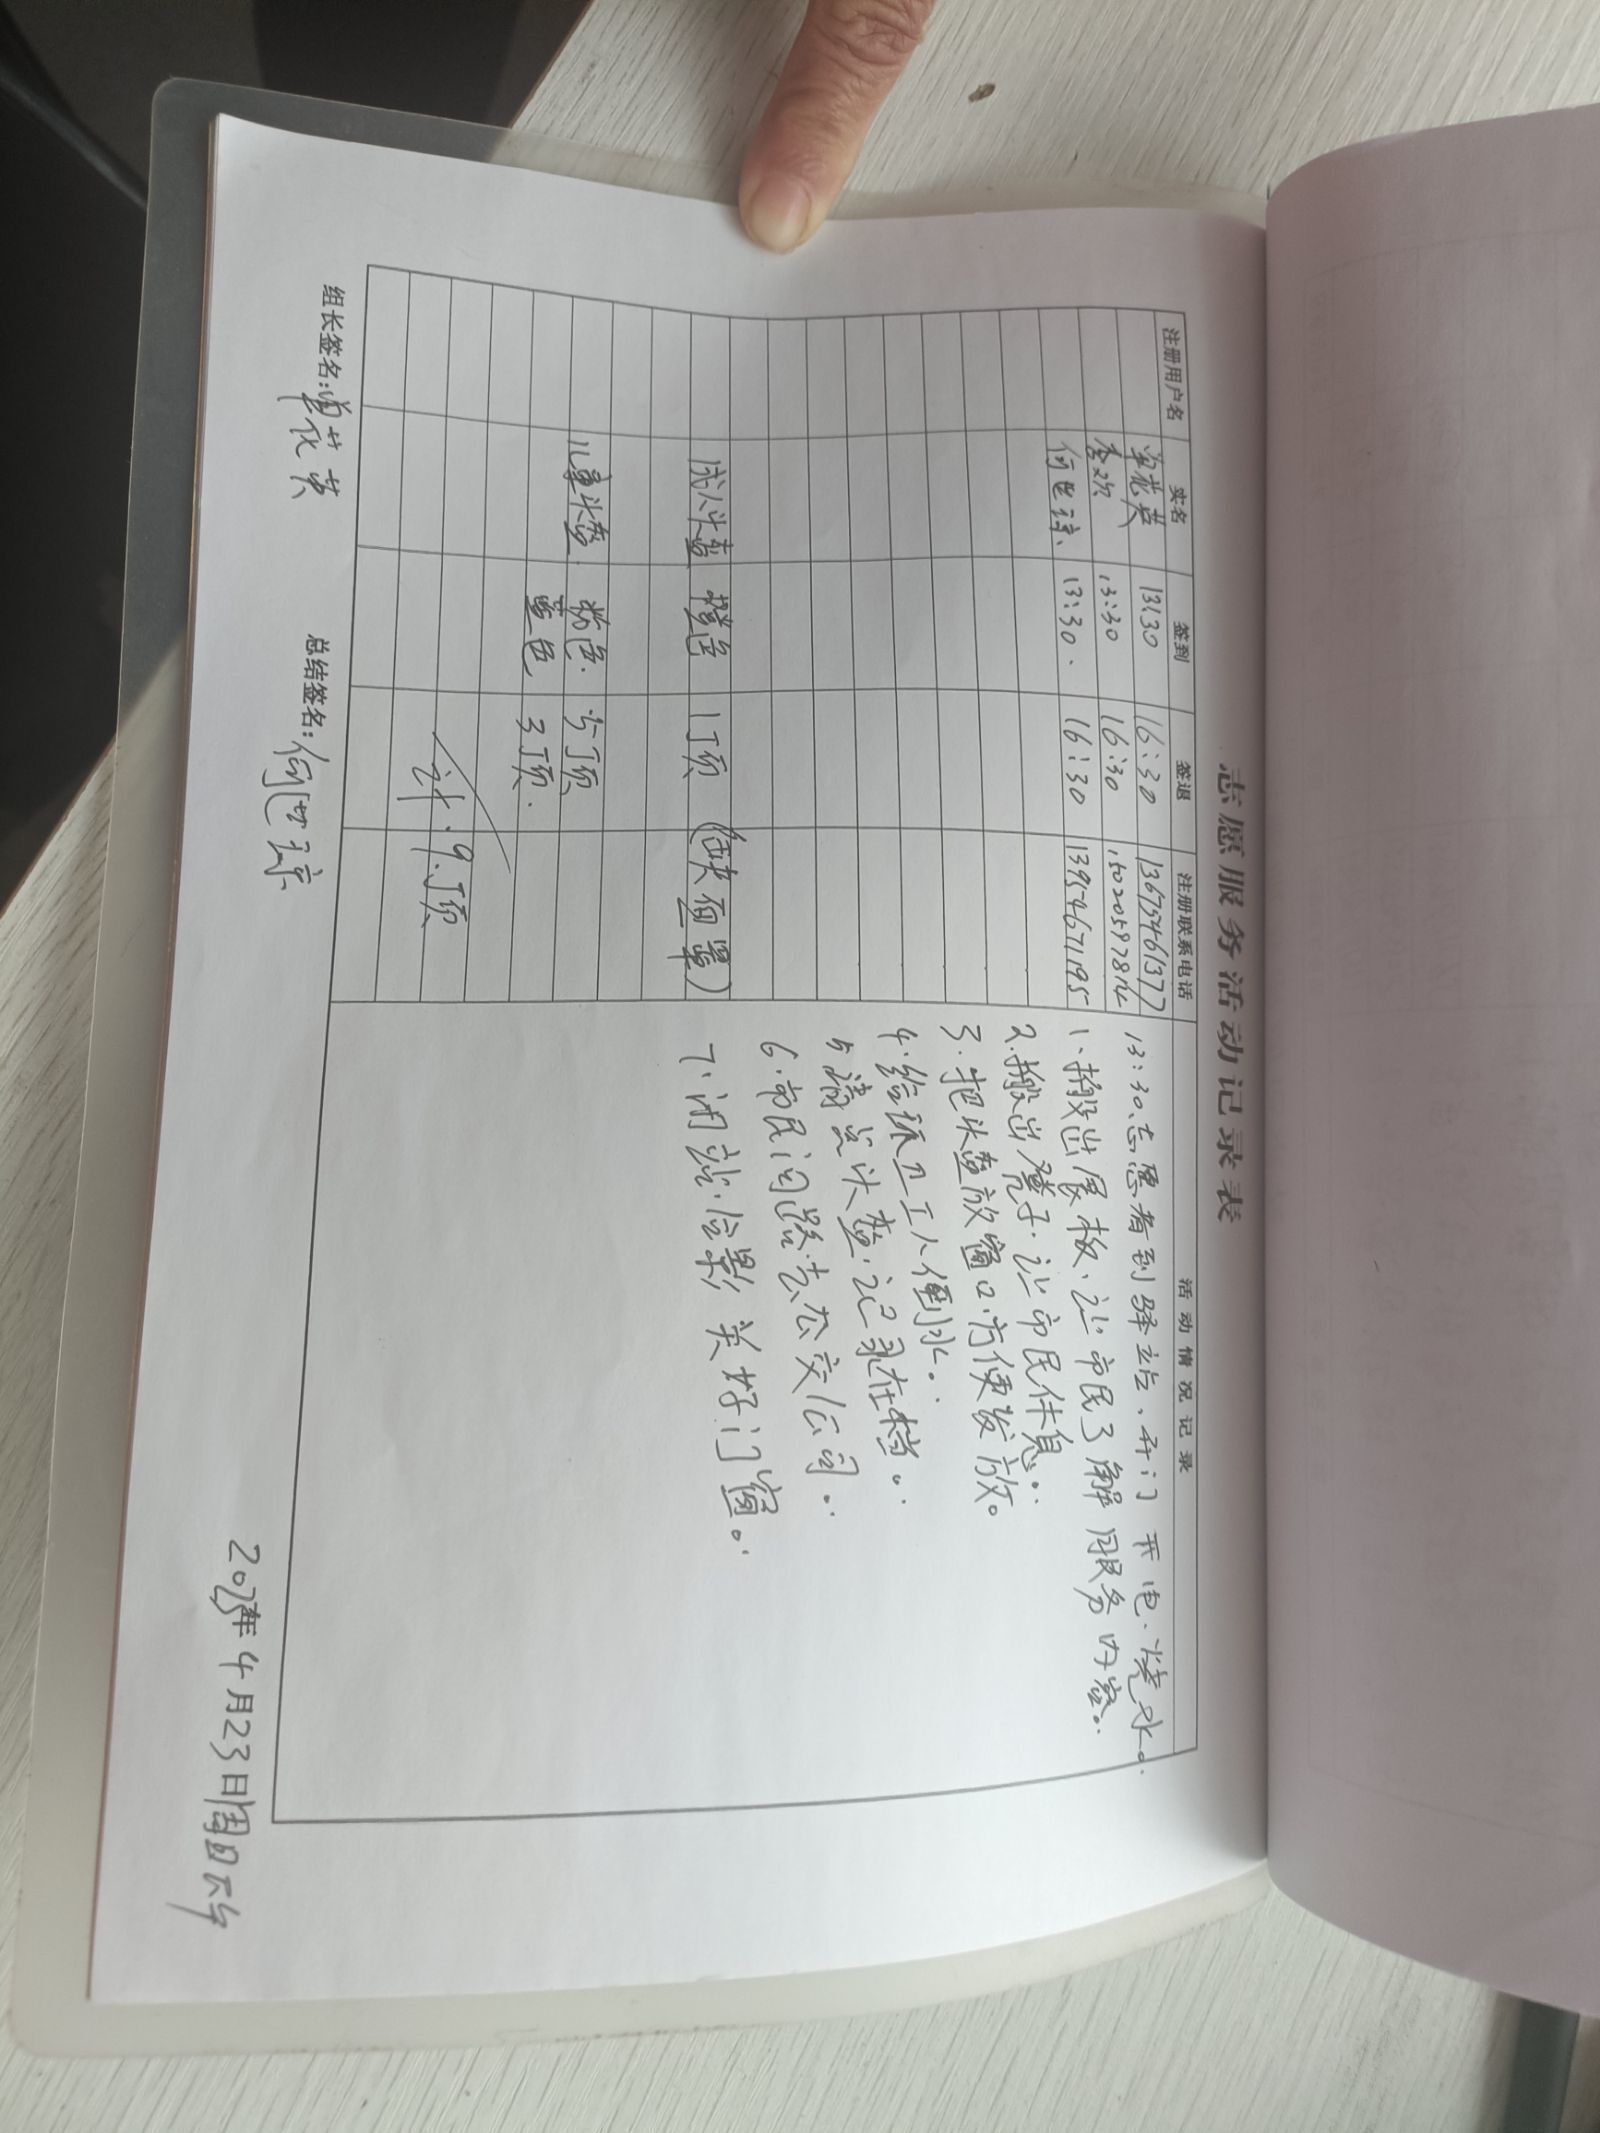 志愿服务活动记录表
注册用户名 实名 签到 签退 注册联系电话 活动情况记录
单花英 13:30 16:30 13675461377
李欢 13:30 16:30 15020597814
何世琼 13:30. 16:30 13954671195
13:30、志愿者到驿站、开门 开电、烧水。
1、搬出展板、让市民了解服务内容。
2.搬出凳子、让市民休息。
3.把头盔放窗口、方便发放。
4.给环卫工人倒水。
5 清点头盔、记录在档。
6.市民问路、去公交公司。
7.闭站、合影 关好门窗。
成人头盔 橙色 1顶 (缺面罩)
儿童头盔 粉色 5顶
蓝色 3顶.
计.9顶
组长签名:单花英 总结签名:何世琼
年4月23日周日下午